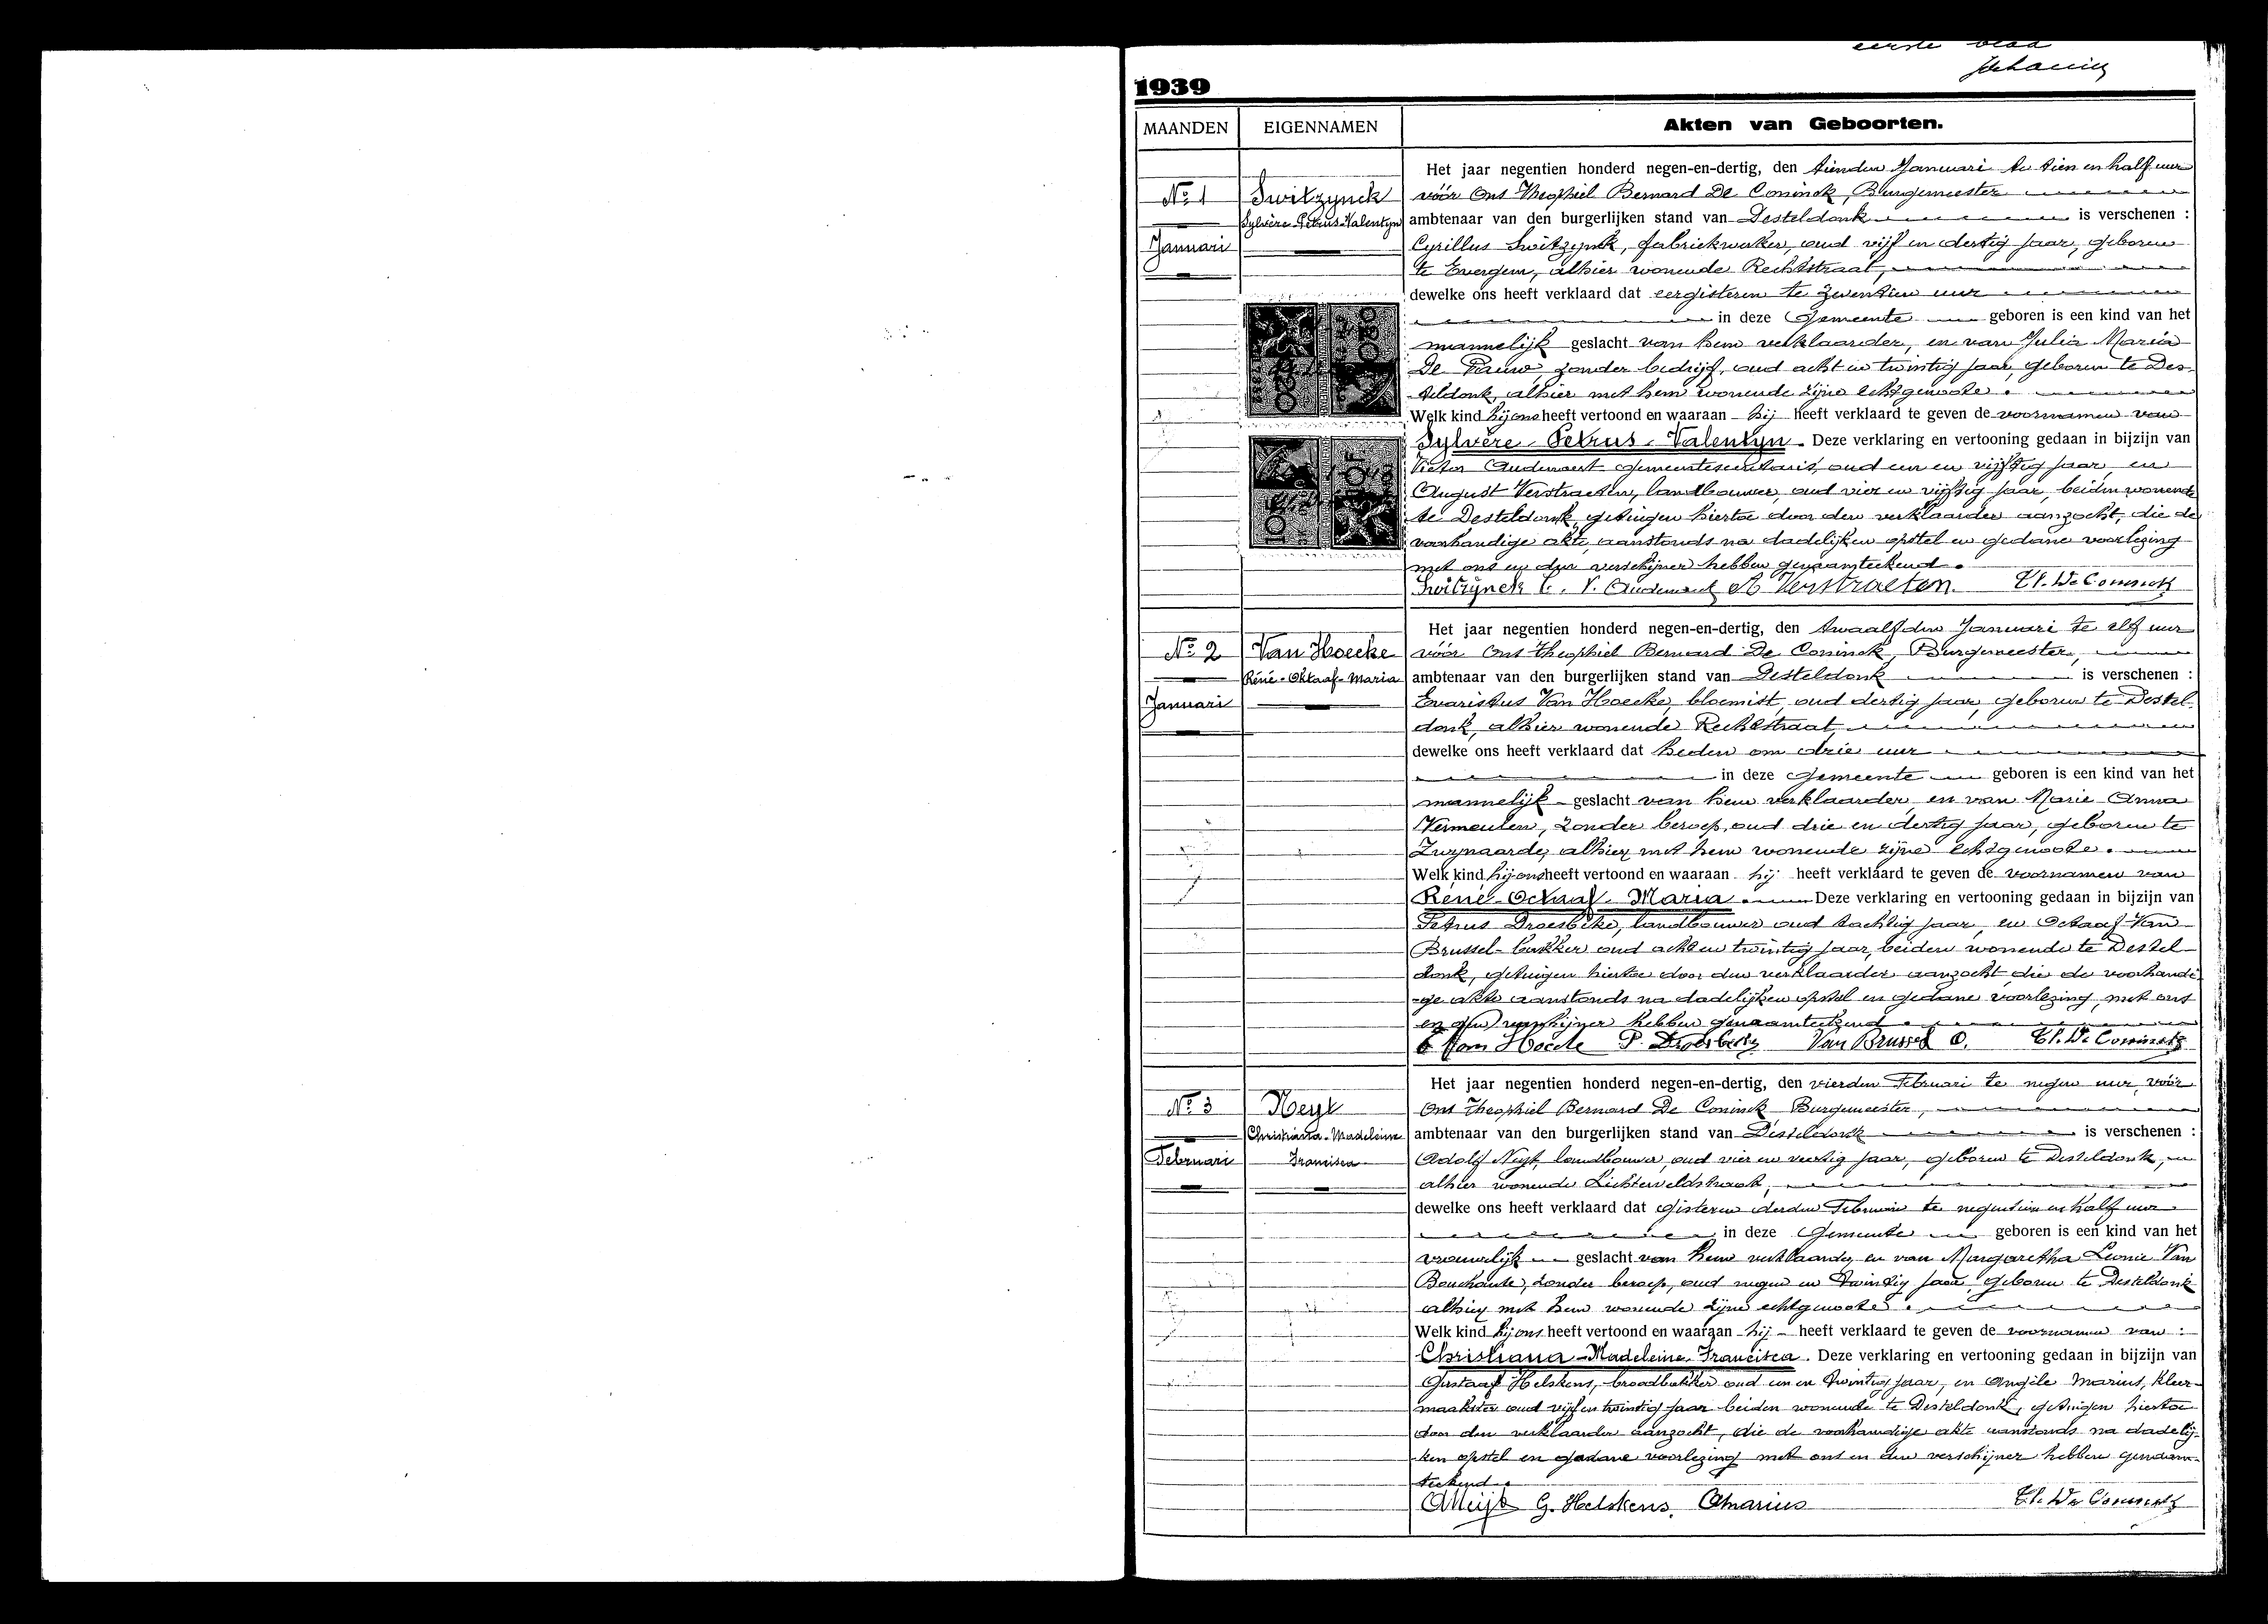 eerste blad
1939
MAANDEN
EIGENNAMEN
Akten van Geboorten.
Nº 1
Januari
Switzynck
Sylvère-Petrus-Valentyn
Het jaar negentien honderd negen-en-dertig, den tienden Januari te tien en half uur
vóór Ons Theophiel Bernard De Coninck, Burgemeester
ambtenaar van den burgerlijken stand van Desteldonk is verschenen :
Cyrillus Switzynck, fabriekwerker, oud vijf en dertig jaar, geboren
te Evergem, alhier wonende Rechtstraat,
dewelke ons heeft verklaard dat eergisteren te zeventien uur
in deze Gemeente geboren is een kind van het
mannelijk geslacht van hem verklaarder, en van Julia Maria
De Pauw, zonder bedrijf, oud acht en twintig jaar, geboren te Des-
teldonk, alhier met hem wonende zijne echtgenoote.
Welk kind hij ons heeft vertoond en waaraan hij heeft verklaard te geven de voornamen van
Sylvère-Petrus-Valentyn. Deze verklaring en vertooning gedaan in bijzijn van
Victor Audenaert gemeentesecretaris, oud een en vijftig jaar, en
August Verstraeten, landbouwer, oud vier en vijftig jaar, beiden wonende
te Desteldonk, getuigen hiertoe door den verklaarder aanzocht, die de
voorhandige akte, aanstonds na dadelijken opstel en gedane voorlezing
met ons en den verschijner hebben genaamteekend.
Switzynck C. V. Audenaert A Verstraeten. Th. De Coninck
Nº 2
Januari
Van Hoecke
Réné-Oktaaf-Maria
Het jaar negentien honderd negen-en-dertig, den twaalfden Januari te elf uur
vóór Ons Theophiel Bernard De Coninck, Burgemeester,
ambtenaar van den burgerlijken stand van Desteldonk is verschenen :
Evaristus Van Hoecke, bloemist, oud dertig jaar, geboren te Destel-
donk, alhier wonende Rechtstraat,
dewelke ons heeft verklaard dat heden om drie uur
in deze Gemeente geboren is een kind van het
mannelijk geslacht van hem verklaarder, en van Marie-Anna
Vermeulen, zonder beroep, oud drie en dertig jaar, geboren te
Zwynaarde, alhier met hem wonende zijne echtgenoote.
Welk kind hij ons heeft vertoond en waaraan hij heeft verklaard te geven de voornamen van
Réné-Octaaf-Maria. Deze verklaring en vertooning gedaan in bijzijn van
Petrus Droesbeke, landbouwer oud tachtig jaar, en Octaaf Van
Brussel bakker oud acht en twintig jaar, beiden wonende te Destel-
donk, getuigen hiertoe door den verklaarder aanzocht, die de voorhandi-
-ge akte aanstonds na dadelijken opstel en gedane voorlezing, met ons
en den verschijner hebben genaamteekend.
E Van Hoecke P. Droesbeke Van Brussel O. Th. De Coninck
Nº 3
Februari
Neyt
Christiana-Madeleine
Francisca
Het jaar negentien honderd negen-en-dertig, den vierden Februari te negen uur, vóór
Ons Theophiel Bernard De Coninck Burgemeester,
ambtenaar van den burgerlijken stand van Desteldonk is verschenen :
Adolf Neyt, landbouwer, oud vier en veertig jaar, geboren te Desteldonk,
alhier wonende Lichterveldstraat,
dewelke ons heeft verklaard dat gisteren derden Februari te negentien en half uur
in deze Gemeente geboren is een kind van het
vrouwelijk geslacht van hem verklaarder, en van Margaretha Leonie Van
Bouchaute, zonder beroep, oud negen en twintig jaar, geboren te Desteldonk
alhier met hem wonende zijne echtgenoote.
Welk kind hij ons heeft vertoond en waaraan hij heeft verklaard te geven de voornamen van :
Christiana-Madeleine-Francisca. Deze verklaring en vertooning gedaan in bijzijn van
Gustaaf Helskens, broodbakker oud een en twintig jaar, en Angèle Marius, kleer-
maakster oud vijf en twintig jaar beiden wonende te Desteldonk, getuigen hiertoe
door den verklaarder aanzocht, die de voorhandige akte aanstonds na dadelij-
-ken opstel en gedane voorlezing met ons en den verschijner hebben genaam-
teekend.
A Neijt G. Helskens. A Marius Th. De Coninck